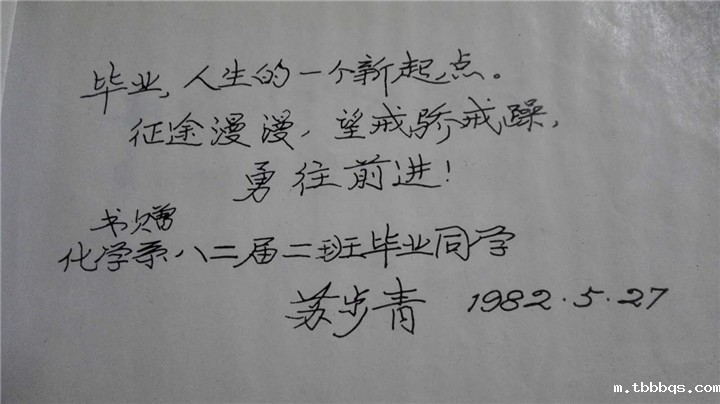 毕业，人生的一个新起点。
征途漫漫，望戒骄戒躁，
勇往前进！
书赠
化学系八二届二班毕业同学
苏步青 1982.5.27
m.tbbbqs.com